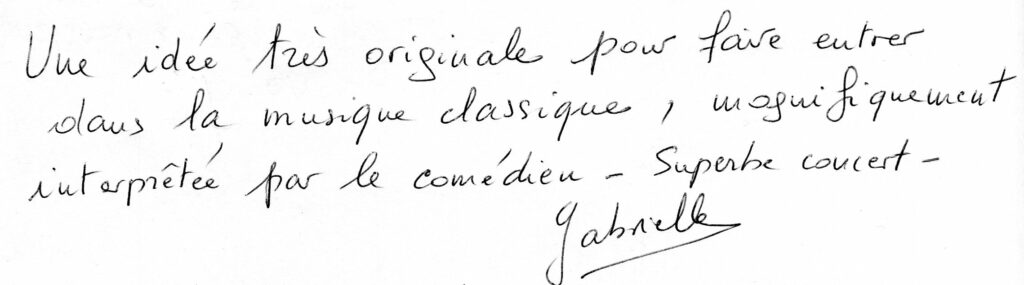 Une idée très originale pour faire entrer
dans la musique classique, magnifiquement
interprêtée par le comédien - Superbe concert -
Gabrielle